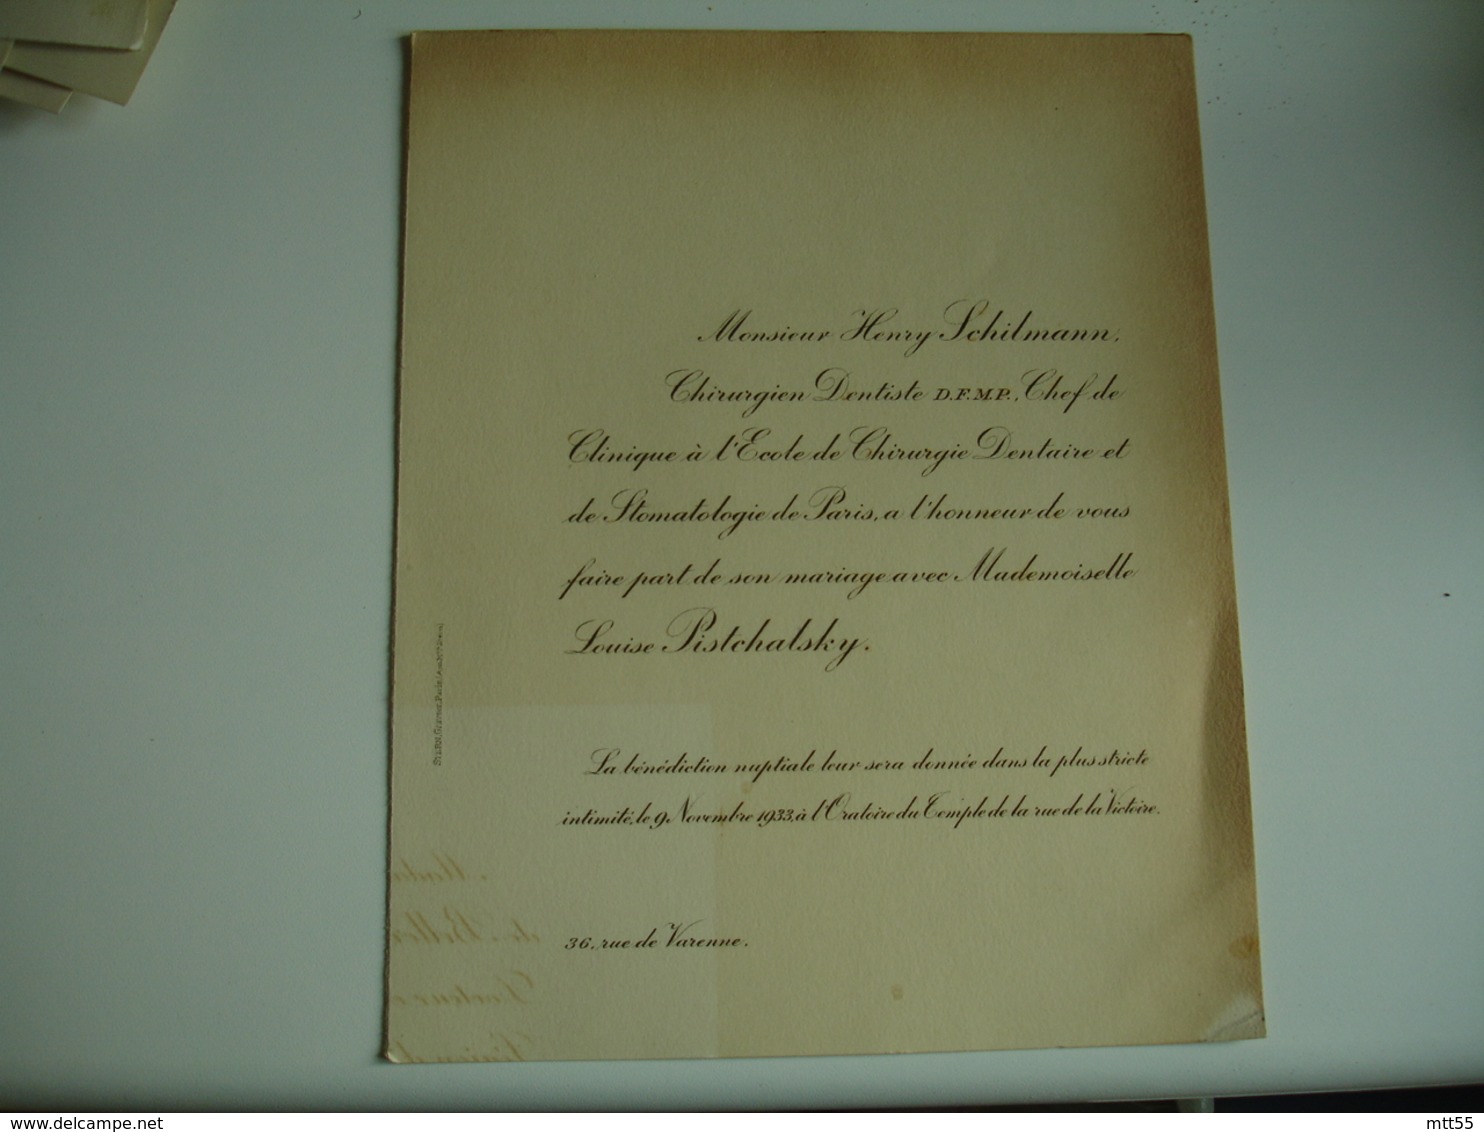 Monsieur Henry Schilmann,
Chirurgien Dentiste D.F.M.P., Chef de
Clinique à l'Ecole de Chirurgie Dentaire et
de Stomatologie de Paris, a l'honneur de vous
faire part de son mariage avec Mademoiselle
Louise Pistchalsky.
La bénédiction nuptiale leur sera donnée dans la plus stricte
intimité, le 9 Novembre 1933, à l'Oratoire du Temple de la rue de la Victoire.
36, rue de Varenne.
STERN, Graveur, Paris
delcampe.net
mtt55